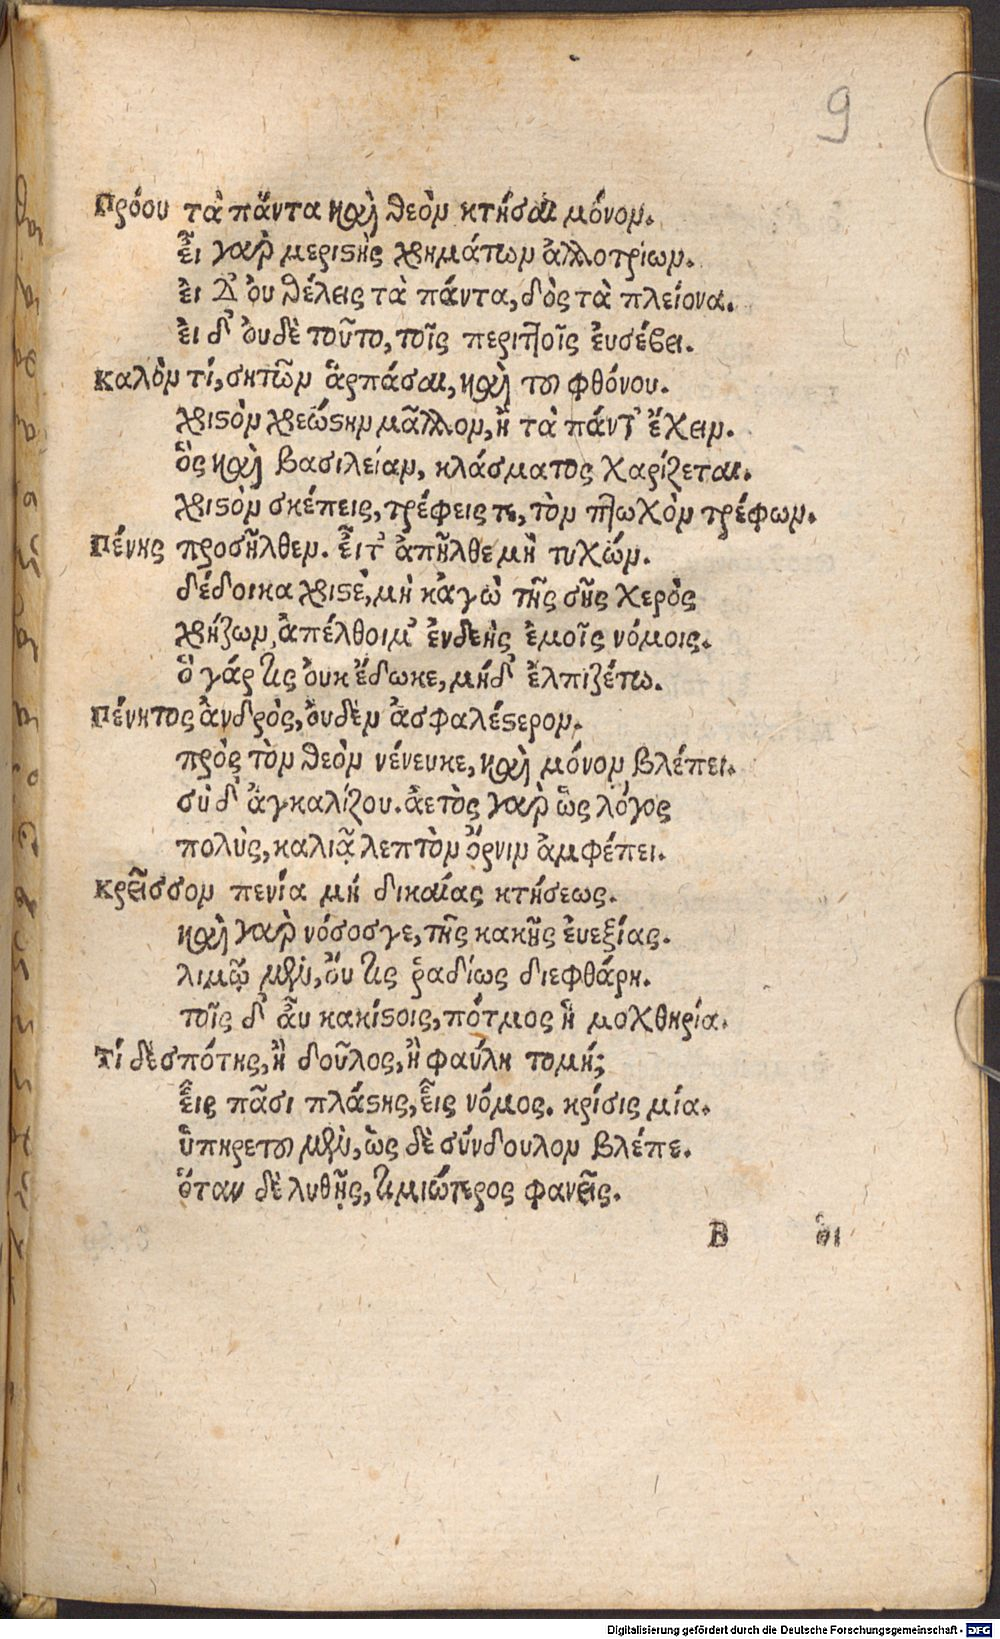 9
Πρόου τὰ πάντα καὶ θεὸν κτήσαι μόνον.
εἶ γαρ̀ μεριστὴς χρημάτων ἀλλοτρίων.
ἐι Δ' ὀυ θέλεις τὰ πάντα, δὸς τὰ πλείονα.
ἐι δ' ὀυδὲ τοῦτο, τοῖς περιττοῖς ἐυσέβει.
Καλὸν τί, σητῶν ἁρπάσαι, καὶ του φθόνου.
χριστὸν χρεώστην μᾶλλον, ἢ τὰ πάντ' ἔχειν.
ὃς καὶ βασιλείαν, κλάσματος χαρίζεται.
χριστὸν σκέπεις, τρέφεις τε, τὸν πτωχὸν τρέφων.
Πένης προσῆλθεν. εἶτ' ἀπῆλθε μὴ τυχών.
δέδοικα χριστὲ, μὴ κἀγὼ τῆς σῆς χερὸς
χρήζων, ἀπέλθοιμ' ἐνδεὴς ἐμοῖς νόμοις.
ὃ γάρ τις ὀυκ ἔδωκε, μήδ' ἐλπιζέτω.
Πένητος ἀνδρὸς, ὀυδὲν ἀσφαλέστερον.
πρὸς τὸν θεὸν νένευκε, καὶ μόνον βλέπει.
σὺ δ' ἀγκαλίζου. ἀετὸς γαρ̀ ὡς λόγος
πολὺς, καλιᾷ λεπτὸν ὄρνιν ἀμφέπει.
Κρεῖσσον πενία μή δικαίας κτήσεως.
καὶ γαρ̀ νόσοσγε, τῆς κακῆς ἐυεξίας.
λιμῷ μὲν, ὄυ τις ῥαδίως διεφθάρη.
τοῖς δ' ἆυ κακίστοις, πότμος ἡ μοχθηρία.
Τί δεσπότης, ἢ δοῦλος, ἢ φαύλη τομή;
εἷις πᾶσι πλάστης, εἷς νόμος. κρίσις μία.
ὑπηρετου μὲν, ὡς δὲ σύνδουλον βλέπε.
ὅταν δὲ λυθῇς, τιμιώτερος φανεῖς.
B ὁι
Digitalisierung gefördert durch die Deutsche Forschungsgemeinschaft - DFG